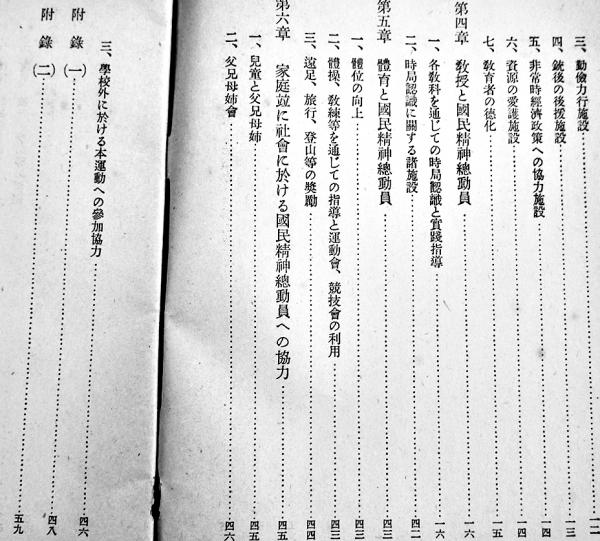 三、勤儉力行施設……一二
四、銃後の後援施設……一三
五、非常時經濟政策への協力施設……一四
六、資源の愛護施設……一四
七、敎育者の德化……一五
第四章 敎授と國民精神總動員……一六
一、各敎科を通じての時局認識と實踐指導……一六
二、時局認識に關する諸施設……四二
第五章 體育と國民精神總動員……四三
一、體位の向上……四三
二、體操、敎練等を通じての指導と運動會、競技會の利用……四三
三、遠足、旅行、登山等の奬勵……四四
第六章 家庭竝に社會に於ける國民精神總動員への協力……四五
一、兒童と父兄母姉……四五
二、父兄母姉會……四六
三、學校外に於ける本運動への參加協力……四六
附錄(一)……四八
附錄(二)……五九